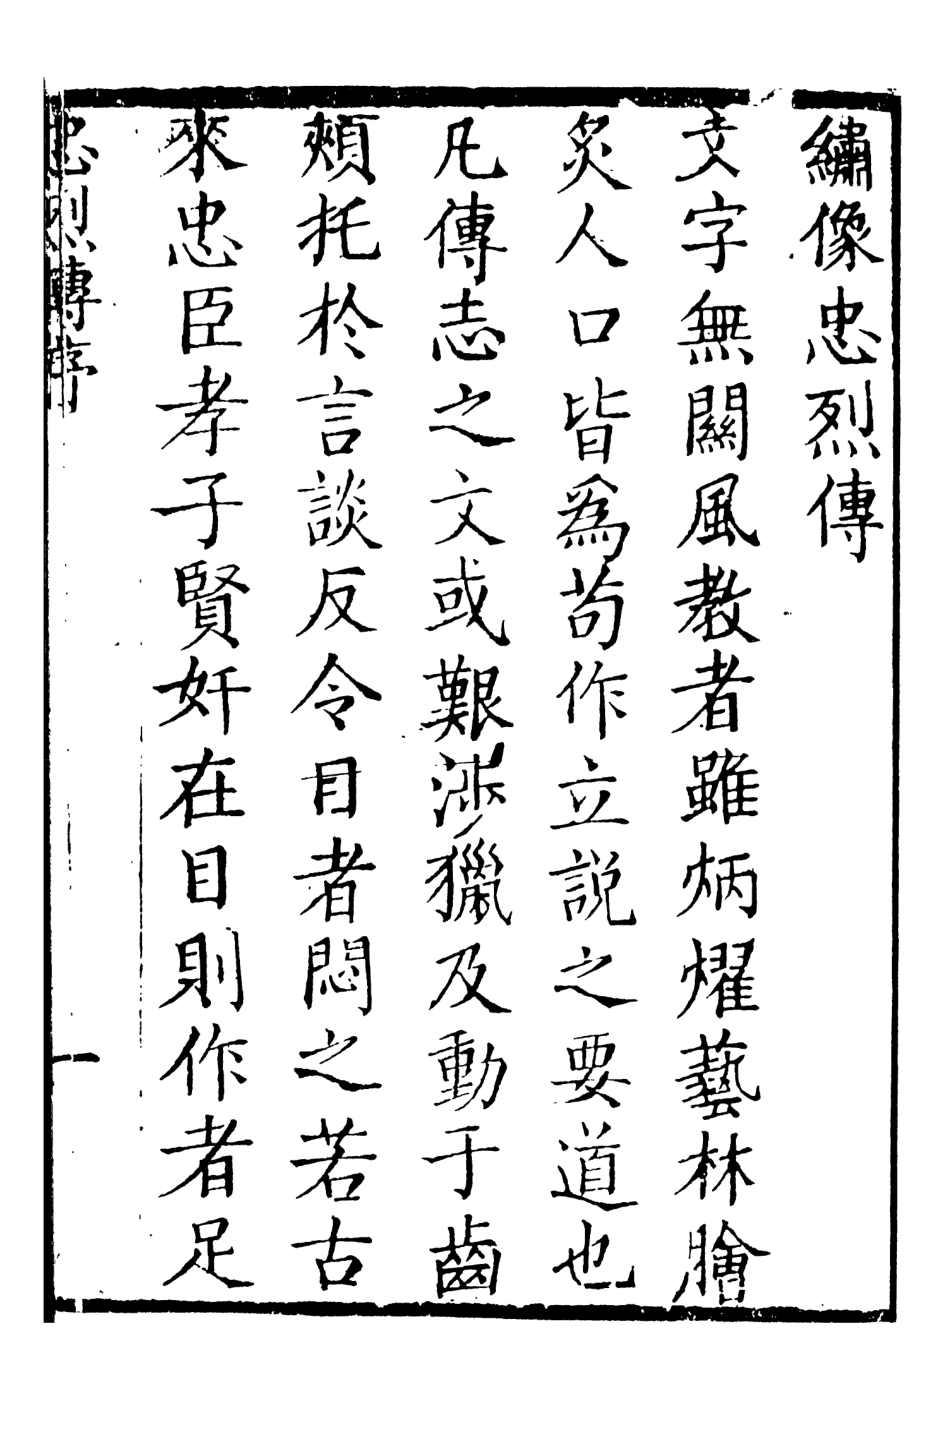 繡像忠烈傳
文字無關風教者雖炳燿藝林膾
炙人口皆爲苟作立說之要道也
凡傳志之文或艱涉獵及動于齒
頰托於言談反令目者悶之若古
來忠臣孝子賢奸在目則作者足
忠烈傳序
一